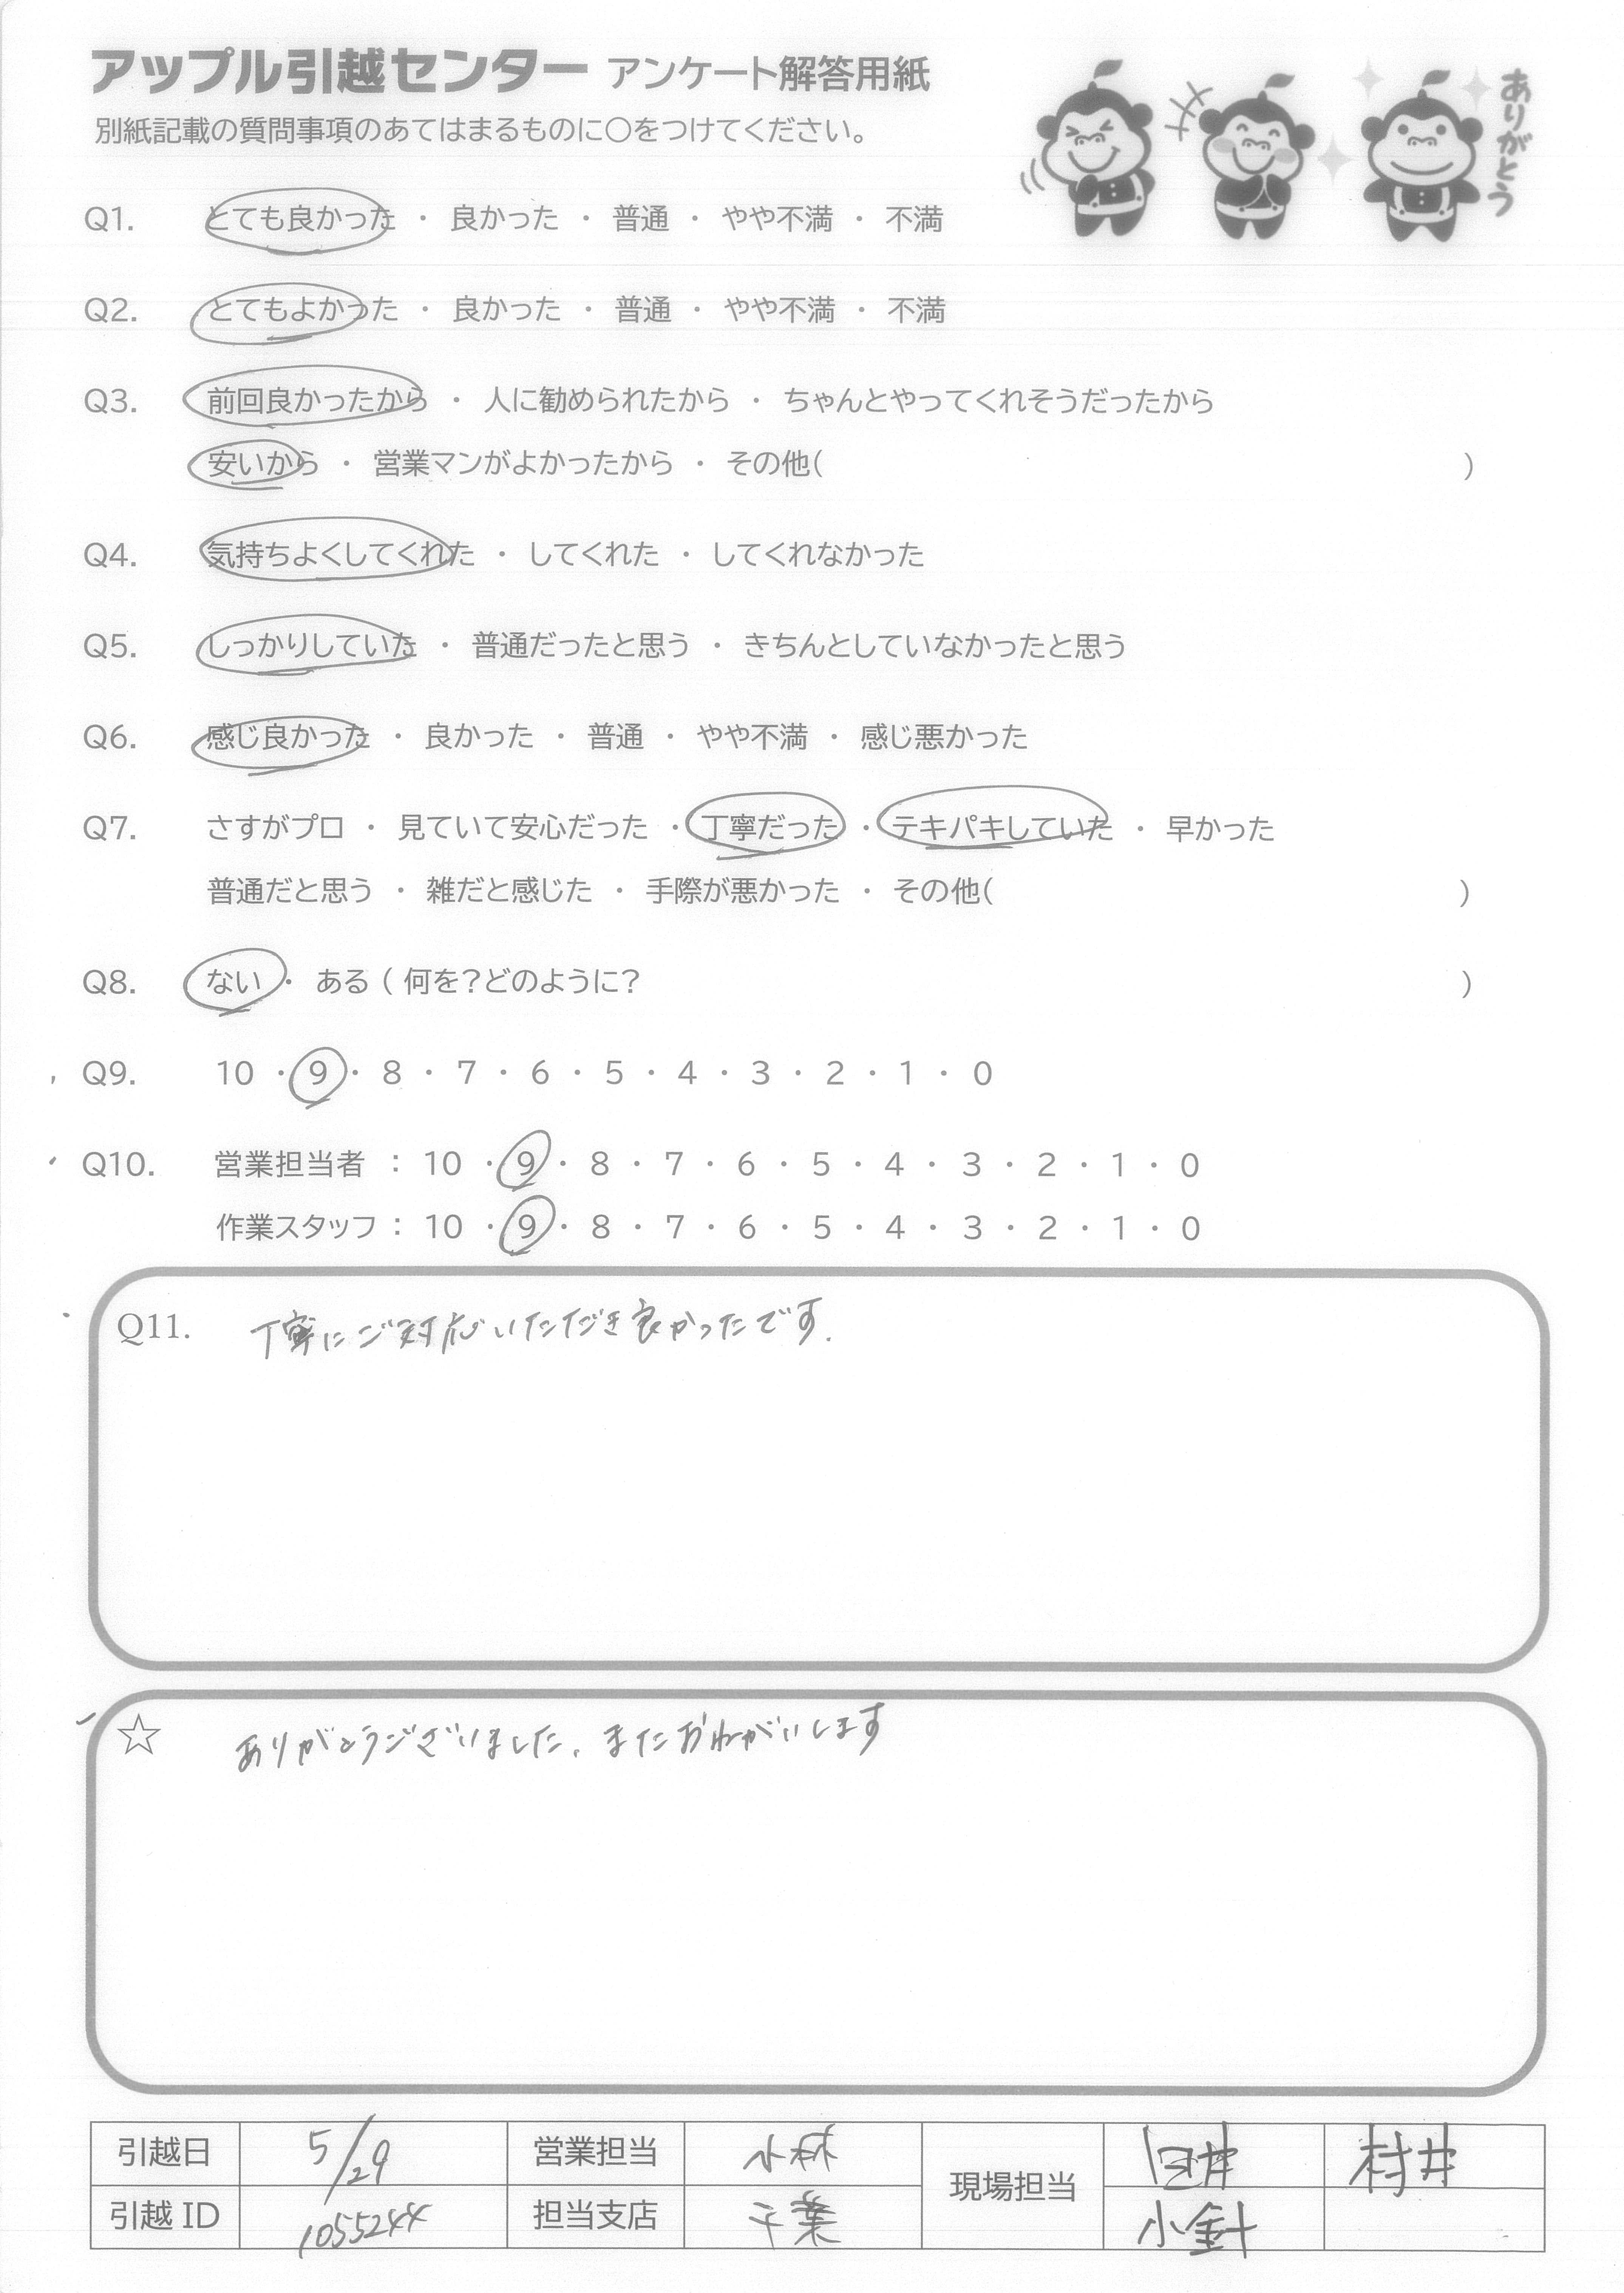 アップル引越センター アンケート解答用紙
ありがとう
別紙記載の質問事項のあてはまるものに○をつけてください。
Q1. とても良かった ・ 良かった ・ 普通 ・ やや不満 ・ 不満
Q2. とてもよかった ・ 良かった ・ 普通 ・ やや不満 ・ 不満
Q3. 前回良かったから ・ 人に勧められたから ・ ちゃんとやってくれそうだったから
安いから ・ 営業マンがよかったから ・ その他( )
Q4. 気持ちよくしてくれた ・ してくれた ・ してくれなかった
Q5. しっかりしていた ・ 普通だったと思う ・ きちんとしていなかったと思う
Q6. 感じ良かった ・ 良かった ・ 普通 ・ やや不満 ・ 感じ悪かった
Q7. さすがプロ ・ 見ていて安心だった ・ 丁寧だった ・ テキパキしていた ・ 早かった
普通だと思う ・ 雑だと感じた ・ 手際が悪かった ・ その他( )
Q8. ない ・ ある ( 何を?どのように? )
Q9. 10 ・ 9 ・ 8 ・ 7 ・ 6 ・ 5 ・ 4 ・ 3 ・ 2 ・ 1 ・ 0
Q10. 営業担当者 : 10 ・ 9 ・ 8 ・ 7 ・ 6 ・ 5 ・ 4 ・ 3 ・ 2 ・ 1 ・ 0
作業スタッフ : 10 ・ 9 ・ 8 ・ 7 ・ 6 ・ 5 ・ 4 ・ 3 ・ 2 ・ 1 ・ 0
Q11. 丁寧にご対応いただき良かったです.
☆ ありがとうございました、またおねがいします
引越日 5/29 営業担当 小林 現場担当 臼井 村井
引越ID 1055244 担当支店 千葉 小針